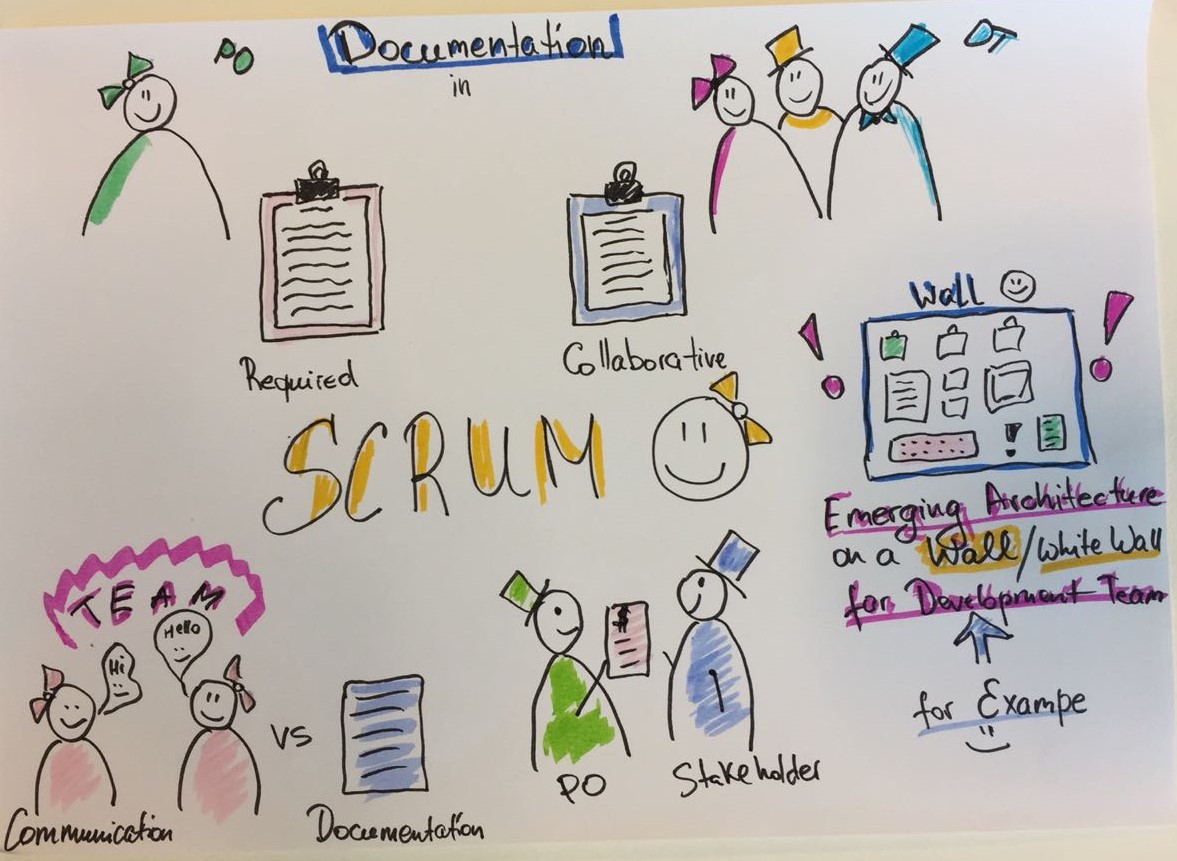 PO
Documentation
in
DT
Required
Collaborative
Wall
SCRUM
Emerging Architecture
on a Wall/White Wall
for Development Team
for Exampe
TEAM
Hi
Hello
vs
Communication
Documentation
PO
Stakeholder